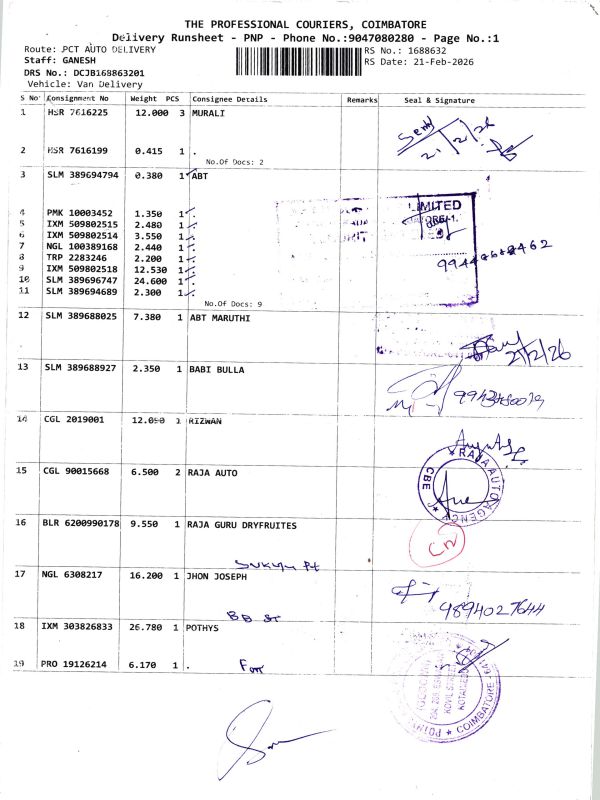 THE PROFESSIONAL COURIERS, COIMBATORE
Delivery Runsheet - PNP - Phone No.:9047080280 - Page No.:1
Route: PCT AUTO DELIVERY
RS No.: 1688632
Staff: GANESH
RS Date: 21-Feb-2026
DRS No.: DCJB168863201
Vehicle: Van Delivery
S No Consignment No Weight PCS Consignee Details Remarks Seal & Signature
1 HSR 7616225 12.000 3 MURALI
2 HSR 7616199 0.415 1 .
No.Of Docs: 2
3 SLM 389694794 0.380 1 ABT
4 PMK 10003452 1.350 1 .
LIMITED
5 IXM 509802515 2.480 1 .
6 IXM 509802514 3.550 1 .
7 NGL 100389168 2.440 1 .
8 TRP 2283246 2.200 1 .
9 IXM 509802518 12.530 1 .
10 SLM 389696747 24.600 1 .
11 SLM 389694689 2.300 1 .
No.Of Docs: 9
12 SLM 389688025 7.380 1 ABT MARUTHI
21/2/26
13 SLM 389688927 2.350 1 BABI BULLA
14 CGL 2019001 12.090 1 RIZWAN
15 CGL 90015668 6.500 2 RAJA AUTO
RAJA AUTO AGENCY CBE
16 BLR 6200990178 9.550 1 RAJA GURU DRYFRUITES
17 NGL 6308217 16.200 1 JHON JOSEPH
9894027644
BB St
18 IXM 303826833 26.780 1 POTHYS
19 PRO 19126214 6.170 1 .
COIMBATORE